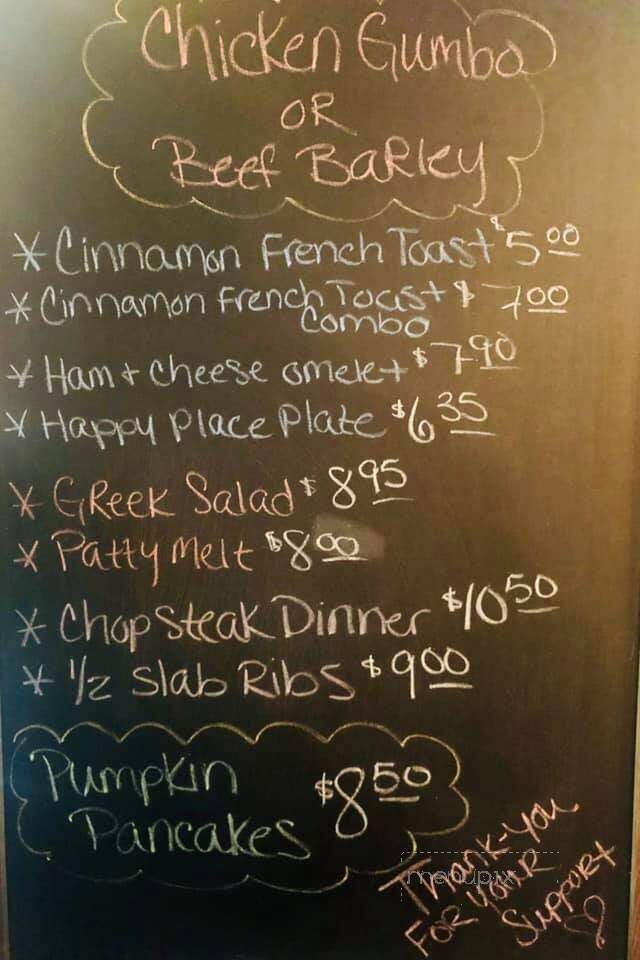 Chicken Gumbo
OR
Beef Barley
* Cinnamon French Toast $5.00
* Cinnamon French Toast $7.00
Combo
* Ham + Cheese omelet $7.90
* Happy Place Plate $6.35
* Greek Salad $8.95
* Patty Melt $8.00
* Chop Steak Dinner $10.50
* 1/2 Slab Ribs $9.00
Pumpkin $8.50
Pancakes
Thank-you
For your
Support
menupix